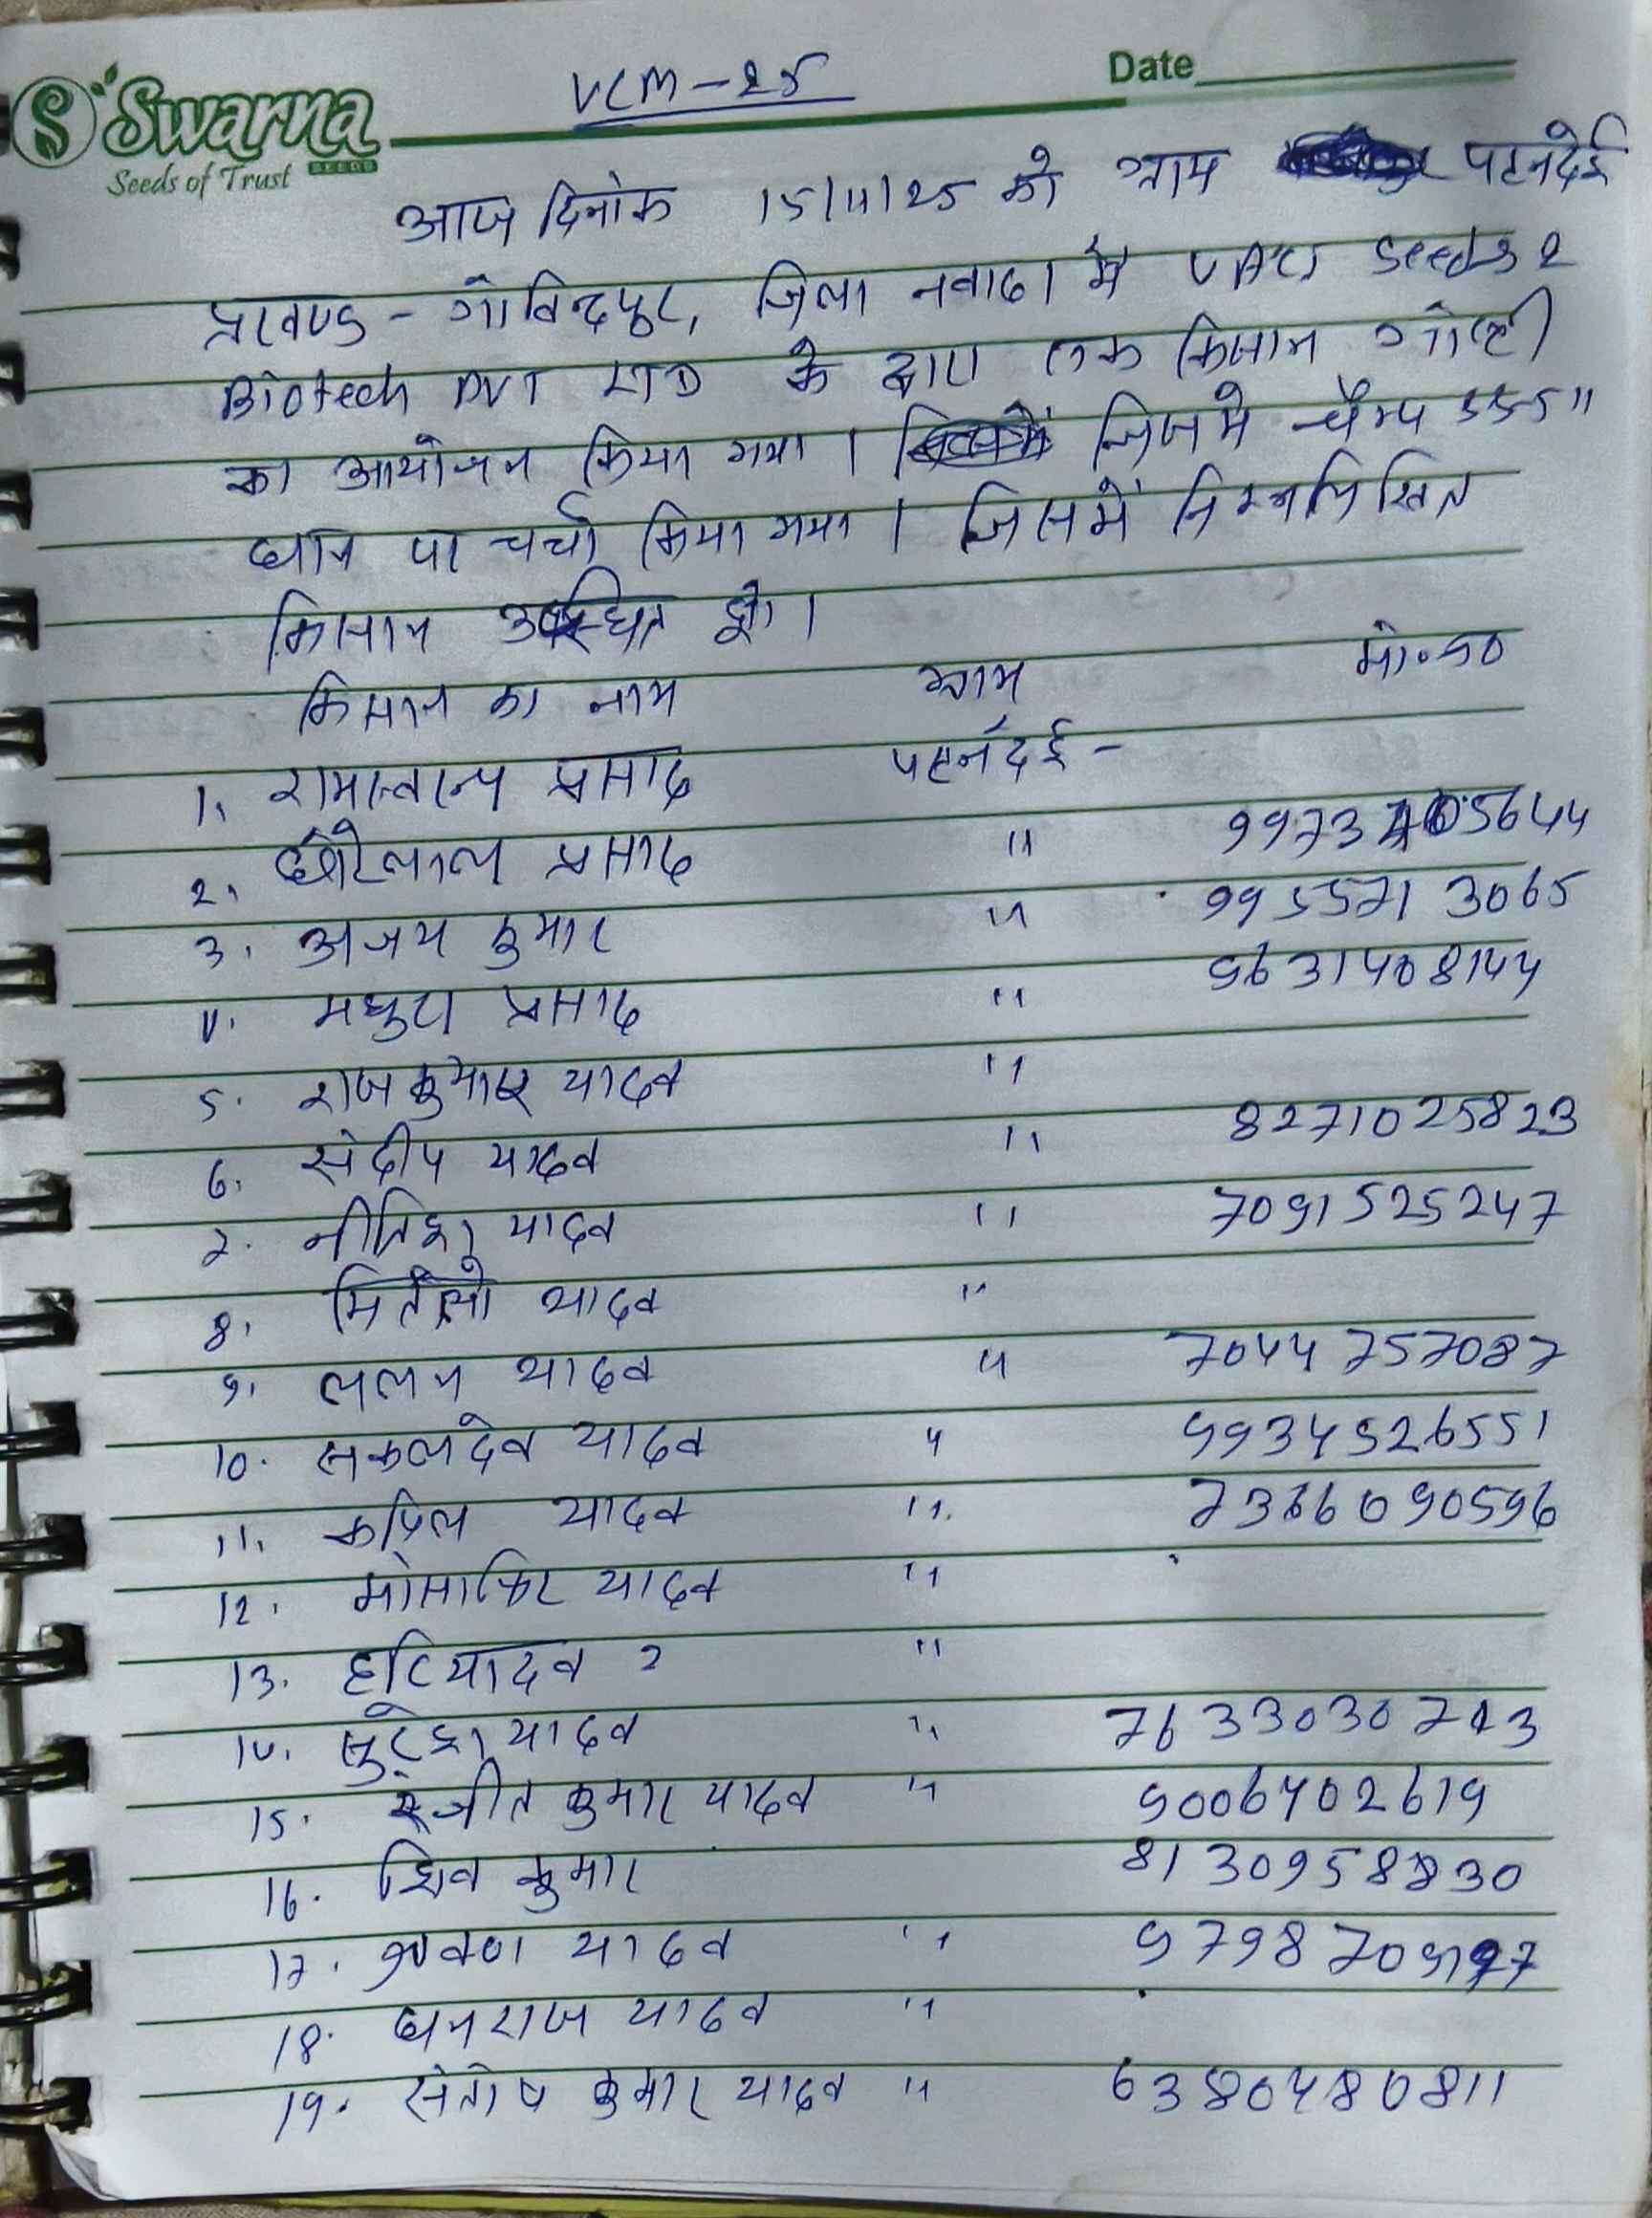 VCM-25
Date
Swarna
SEEDS
Seeds of Trust
आज दिनांक 15/11/25 को ग्राम पटनदेई
प्रखण्ड - गोविन्दपुर, जिला नवादा में Seeds &
Biotech PVT LTD के द्वारा एक किसान गोष्ठी
का आयोजन किया गया । जिसमे चैम्प 555"
धान पर चर्चा किया गया । जिसमें निम्नलिखित
किसान उपस्थित हुए ।
किसान का नाम ग्राम मो॰ न०
1. प्रसाद पटनदेई -
2. छोटेलाल प्रसाद " 5644
3. अजय कुमार " 9955713065
4. मथुरा प्रसाद " 9631408144
5. राजकुमार यादव "
6. संदीप यादव " 8271025823
7. नीतिश यादव " 7091525247
8. यादव "
9. ललन यादव " 7044757087
10. सकलदेव यादव " 9934526551
11. कपिल यादव " 7366090596
12. मोसाफिर यादव "
13. हरि यादव २ "
14. सुरेश यादव " 7633030713
15. रंजीत कुमार यादव " 9006402619
16. शिव कुमार 8130958830
17. श्रवण यादव " 9798709197
18. धनराज यादव "
19. संतोष कुमार यादव " 6380480811